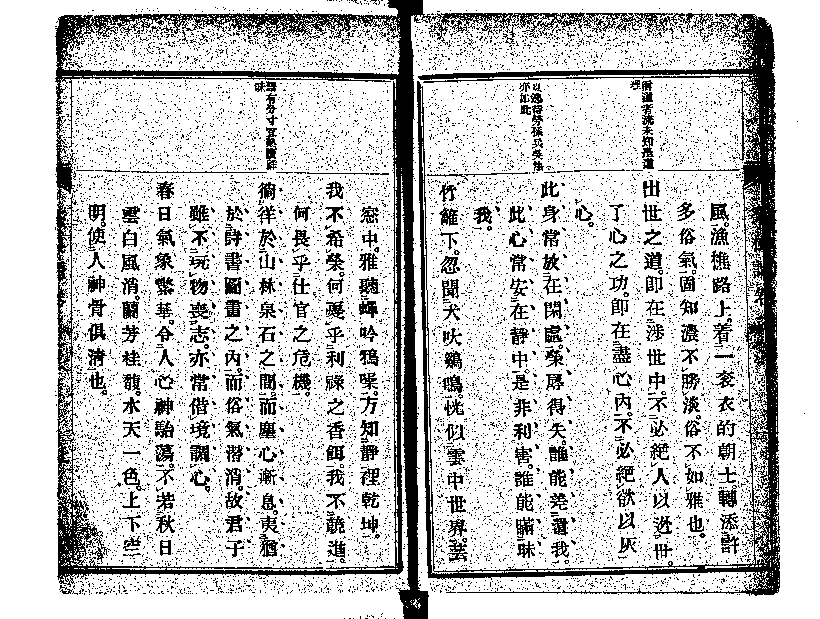 風漁樵路上。着一袞衣的朝士轉添許
多俗氣。固知濃不勝淡。俗不如雅也。
出世之道。即在渉世中。不必絕人以逃世。
了心之功。即在盡心內。不必絕欲以灰
心。
此身常放在閑處。榮辱得失。誰能差遣我。
此心常安在静中。是非利害。誰能瞞昧
我。
竹籬下。忽聞犬吠鷄鳴。恍似雲中世界。芸
窓中。雅聽蟬吟鴉噪。方知静裡乾坤。
我不希榮。何憂乎利祿之香餌。我不競進。
何畏乎仕官之危機。
徜徉於山林泉石之間。而塵心漸息。夷猶
於詩書圖畫之內。而俗氣潜消。故君子
雖不玩物喪志。亦常借境調心。
春日氣象繁華。令人心神駘蕩。不若秋日
雲白風清。蘭芳桂馥。水天一色。上下空
明。使人神骨俱清也。